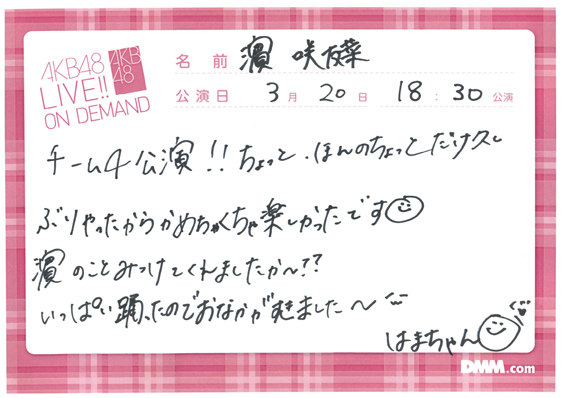 AKB48
LIVE!!
ON DEMAND
AKB
48
名前 濵 咲友菜
公演日 3月 20日 18:30公演
チーム4公演!!ちょっと、ほんのちょっとだけ久し
ぶりやったからかめちゃくちゃ楽しかったです
濵のことみつけてくれましたか〜??
いっぱい踊ったのでおなかがすきました〜
はまちゃん
DMM.com